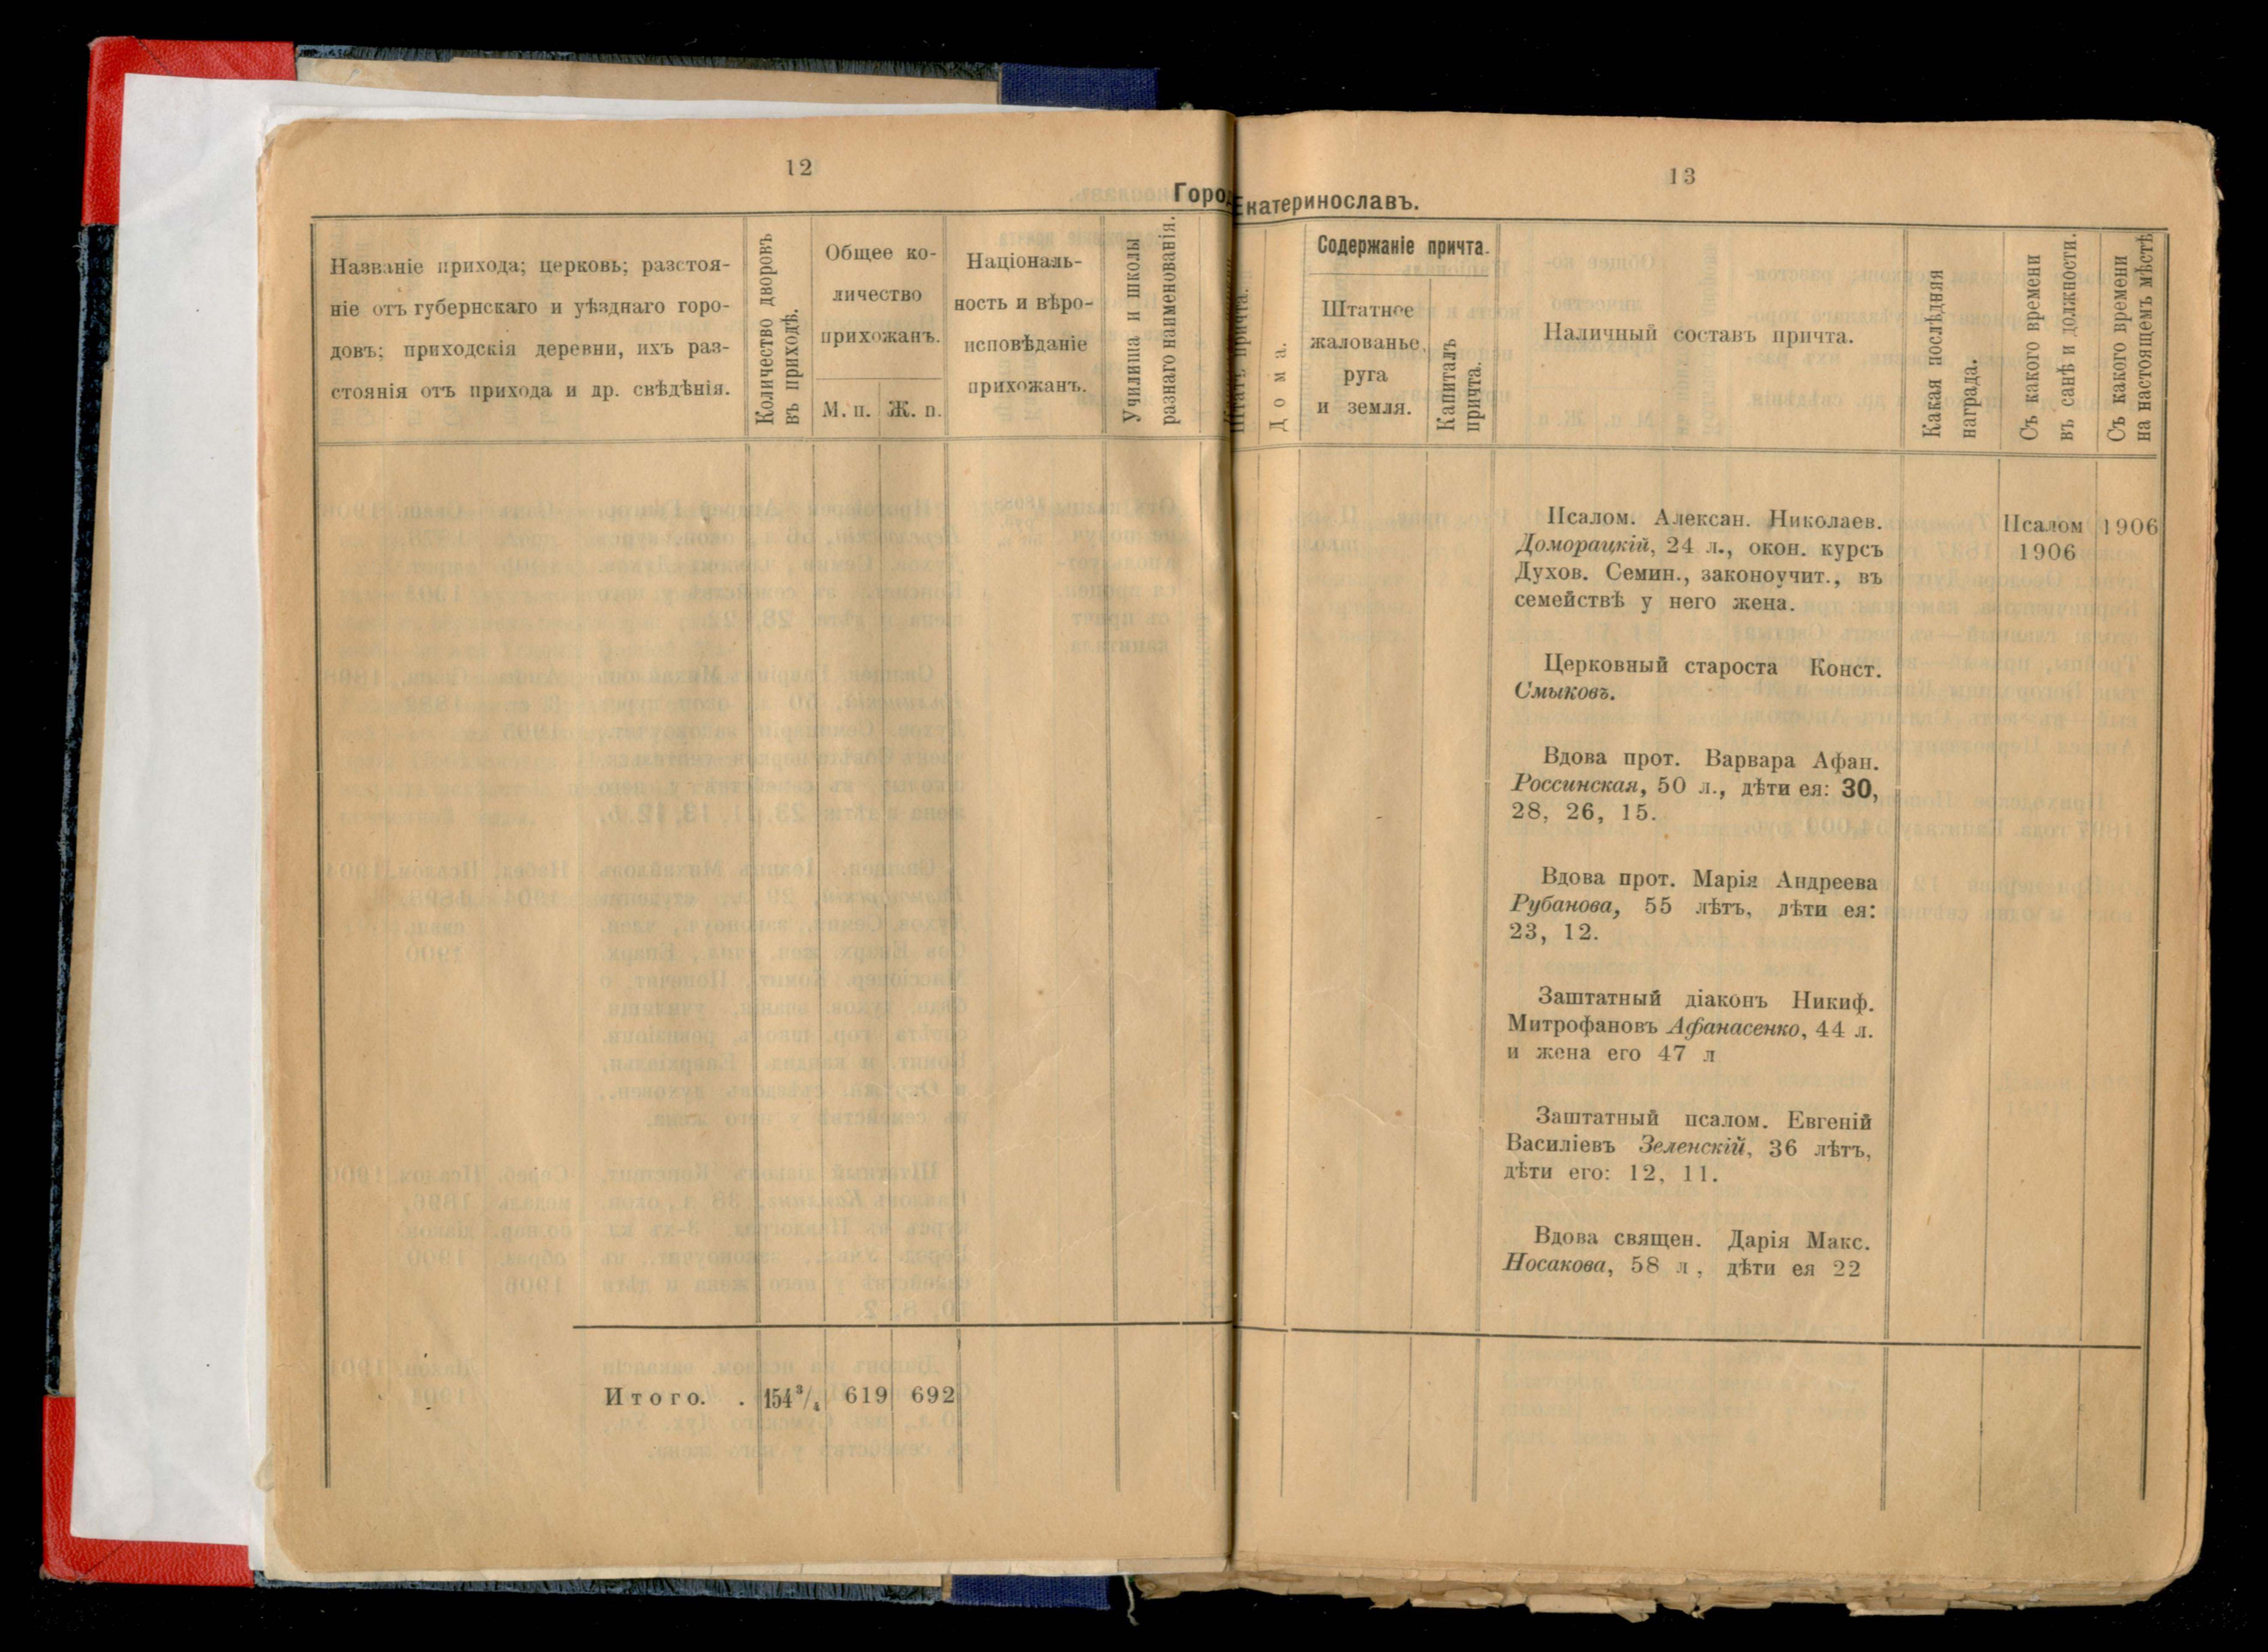 12
Город
Названіе прихода; церковь; разстоя-
ніе отъ губернскаго и уѣзднаго горо-
довъ; приходскія деревни, ихъ раз-
стоянія отъ прихода и др. свѣдѣнія.
Количество дворовъ
въ приходѣ.
Общее ко-
личество
прихожанъ.
М. п.
Ж. п.
Націоналъ-
ность и вѣро-
исповѣданіе
прихожанъ.
Училища и школы
разнаго наименованія.
Итого. . 154³/₄ 619 692
13
Екатеринославъ.
Штатъ причта.
Дома.
Содержаніе причта.
Штатное
жалованье,
руга
и земля.
Капиталъ
причта.
Наличный составъ причта.
Какая послѣдняя
награда.
Съ какого времени
въ санѣ и должности.
Съ какого времени
на настоящемъ мѣстѣ
Псалом. Алексан. Николаев.
Доморацкій, 24 л., окон. курсъ
Духов. Семин., законоучит., въ
семействѣ у него жена.
Псалом
1906
1906
Церковный староста Конст.
Смыковъ.
Вдова прот. Варвара Афан.
Россинская, 50 л., дѣти ея: 30,
28, 26, 15.
Вдова прот. Марія Андреева
Рубанова, 55 лѣтъ, дѣти ея:
23, 12.
Заштатный діаконъ Никиф.
Митрофановъ Афанасенко, 44 л.
и жена его 47 л
Заштатный псалом. Евгеній
Василіевъ Зеленскій, 36 лѣтъ,
дѣти его: 12, 11.
Вдова священ. Дарія Макс.
Носакова, 58 л, дѣти ея 22